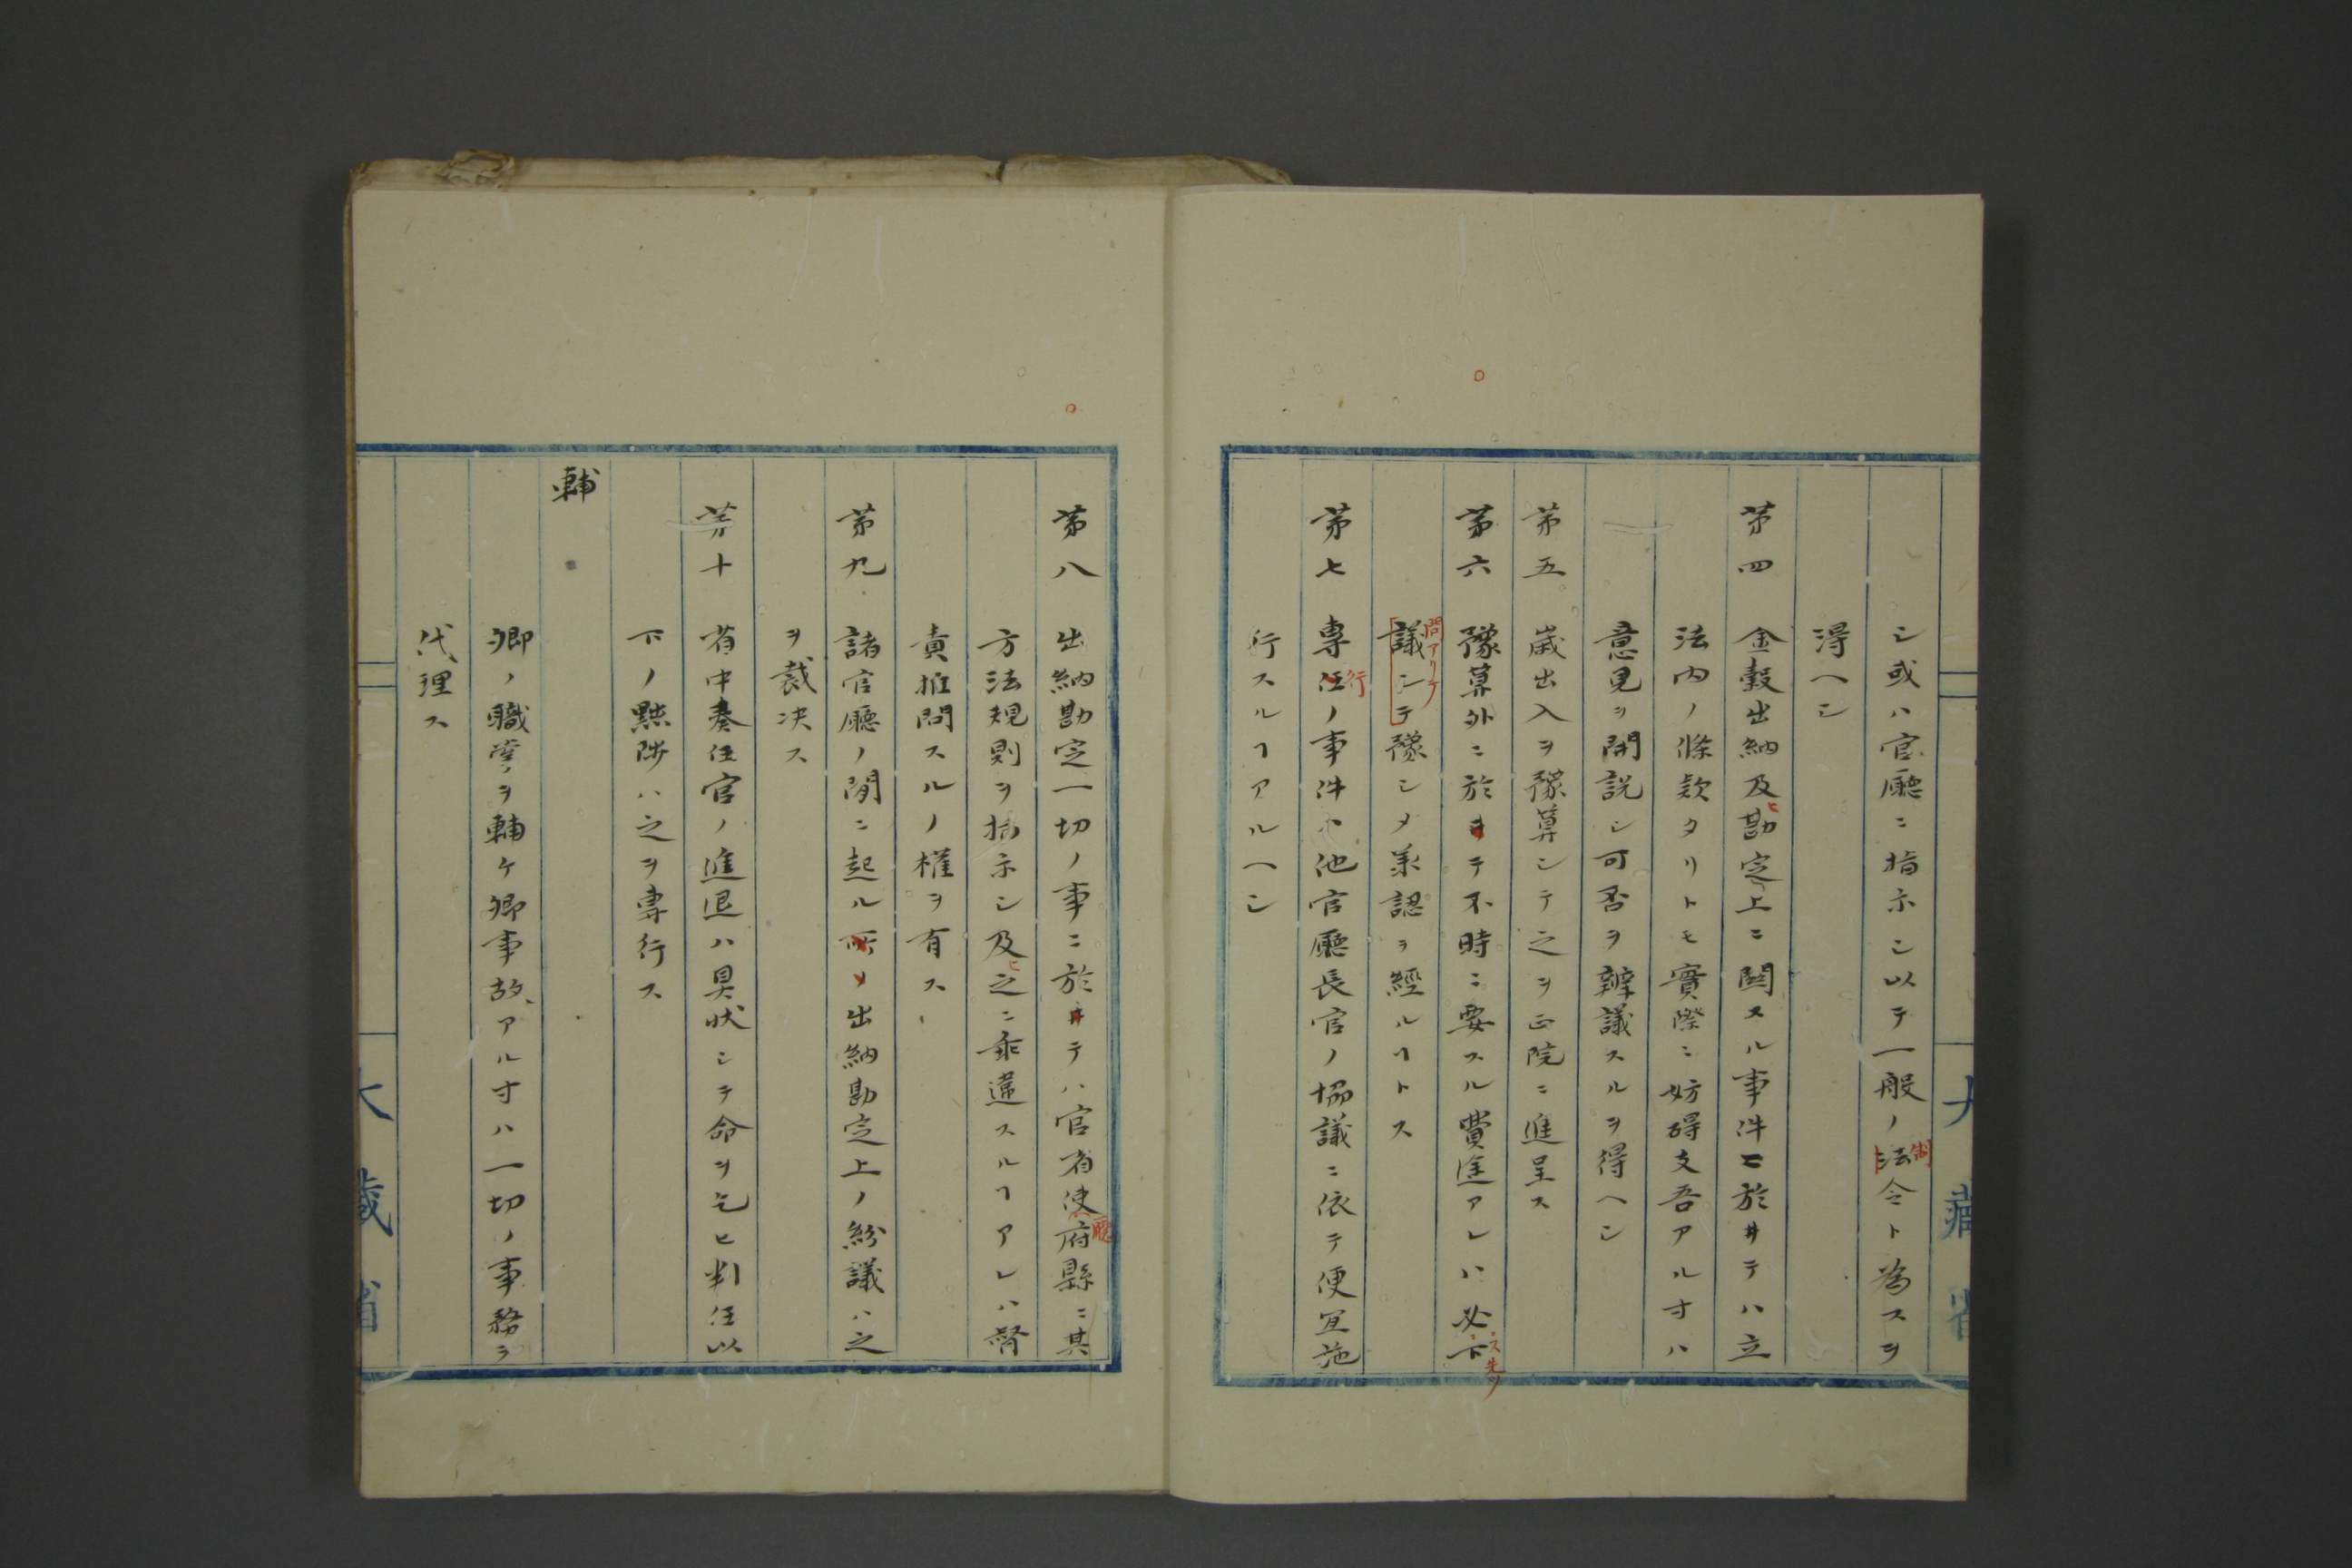 シ或ハ官廳ニ指示シ以テ一般ノ法制令ト為スヲ
得ヘシ
第四 金穀出納及ヒ勘定上ニ関スル事件ニ於井テハ立
法内ノ條款タリトモ實際ニ妨碍支吾アル寸ハ
意見ヲ開説シ可否ヲ辨議スルヲ得ヘシ
第五 歳出入ヲ豫算シテ之ヲ正院ニ進呈ス
第六 豫算外ニ於井テ不時ニ要スル費途アレハ必ス先ツ下
議シテ問アリテ豫シメ承認ヲ經ルヿトス
第七 専任行ノ事件ハ他官廳長官ノ協議ニ依テ便宜施
行スルヿアルヘシ
第八 出納勘定一切ノ事ニ於井テハ官省使廳府縣ニ其
方法規則ヲ指示シ及ヒ之ニ乖違スルヿアレハ督
責推問スルノ権ヲ有ス
第九 諸官廳ノ間ニ起ル所ノ出納勘定上ノ紛議ハ之
ヲ裁决ス
第十 省中奏任官ノ進退ハ具状シテ命ヲ乞ヒ判任以
下ノ黜陟ハ之ヲ専行ス
輔
卿ノ職掌ヲ輔ケ卿事故アル寸ハ一切ノ事務ヲ
代理ス
大藏省
大藏省